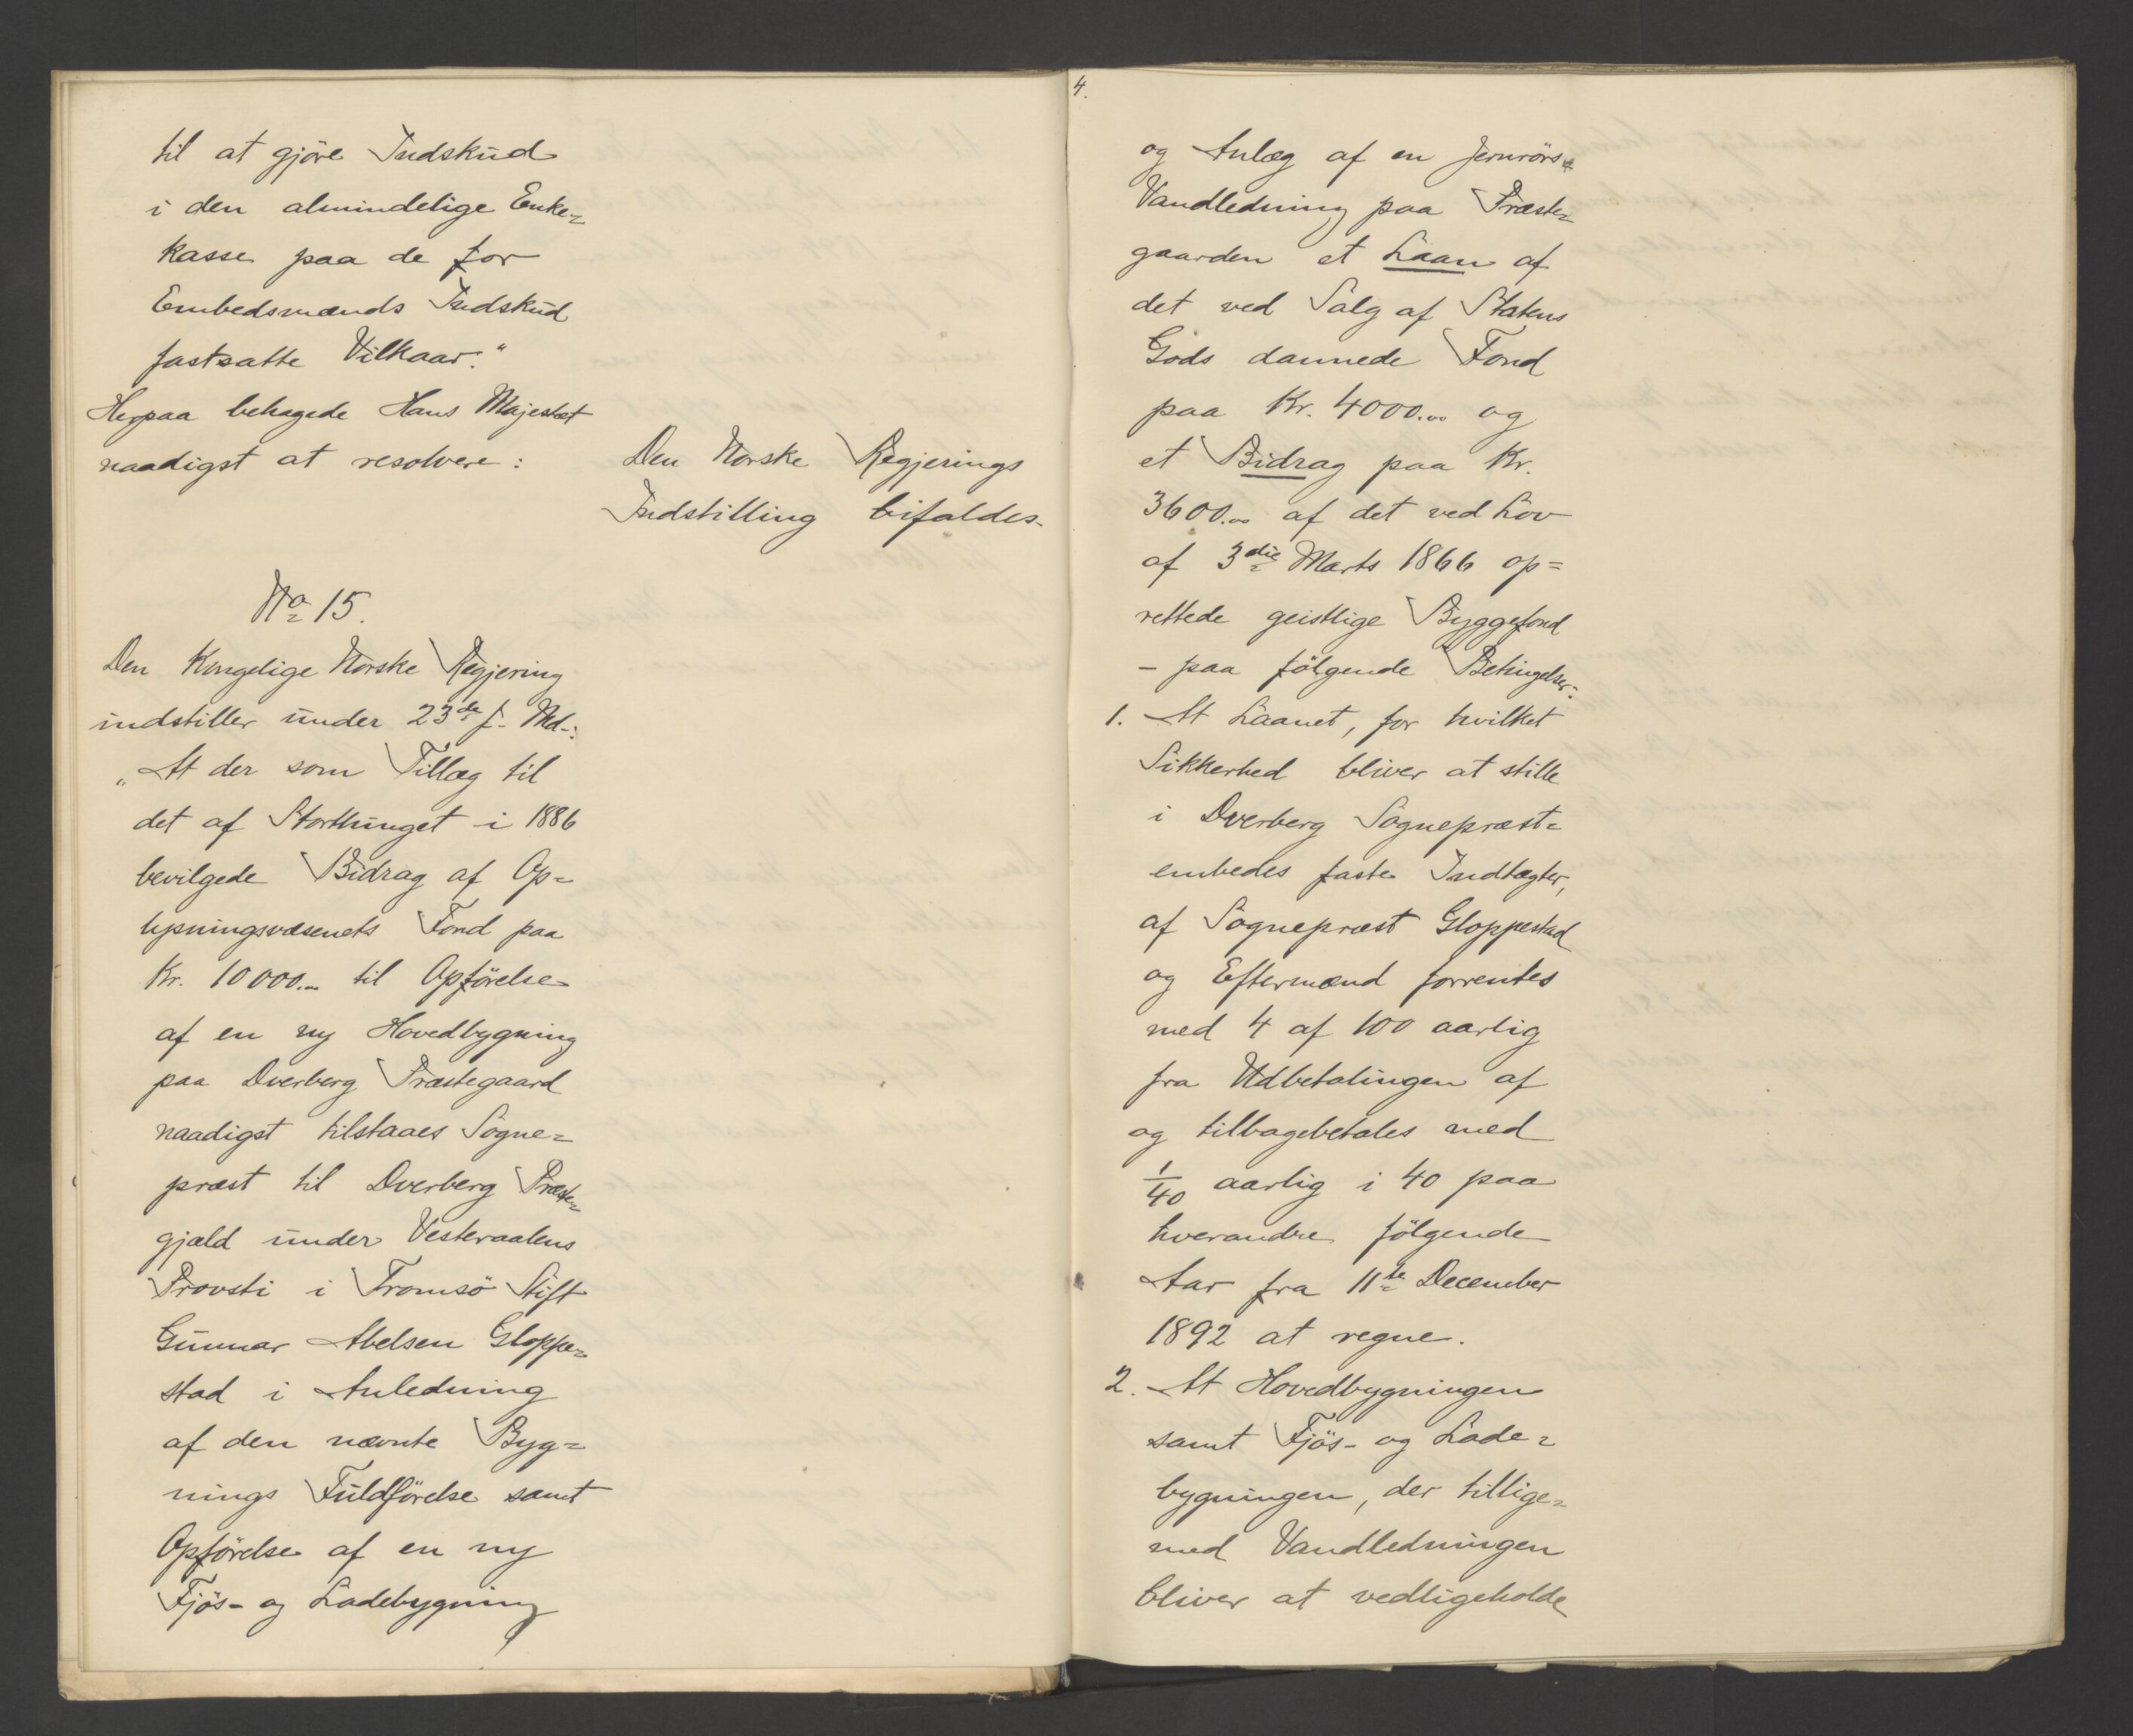 til at gjöre Indskud
i den almindelige Enke=
kasse paa de for
Embedsmænds Indskud
fastsatte Vilkaar."
Herpaa behagede Hans Majestæt
naadigst at resolvere:
Den Norske Regjerings
Indstilling bifaldes.
No 15.
Den Kongelige Norske Regjering
indstiller under 23de f. Md.:
„At der som Tillæg til
det af Storthinget i 1886
bevilgede Bidrag af Op=
lysningsvæsenets Fond paa
Kr. 10000.- til Opförelse
af en ny Hovedbygning
paa Dverberg Præstegaard
naadigst tilstaaes Sogne=
præst til Dverberg Præste=
gjæld under Vesteraalens
Provsti i Tromsö Stift
Gunnar Abelsen Gloppe=
stad i Anledning
af den nævnte Byg=
nings Fuldförelse samt
Opförelse af en ny
Fjös- og Ladebygning
4.
og Anlæg af en Jernrörs=
Vandledning paa Præste=
gaarden et Laan af
det ved Salg af Statens
Gods dannede Fond
paa Kr. 4000.00 og
et Bidrag paa Kr.
3600.00 af det ved Lov
af 3die Marts 1866 op=
rettede geistlige Byggefond
- paa fölgende Betingelser:
1. At Laanet, for hvilket
Sikkerhed bliver at stille
i Dverberg Sognepræst=
embedes faste Indtægter,
af Sognepræst Gloppestad
og Eftermænd forrentes
med 4 af 100 aarlig
fra Udbetalingen af
og tilbagebetales med
1/40 aarlig i 40 paa
hverandre fölgende
Aar fra 11te December
1892 at regne.
2. At Hovedbygningen
samt Fjös- og Lade=
bygningen, der tillige=
med Vandledningen
bliver at vedligeholde